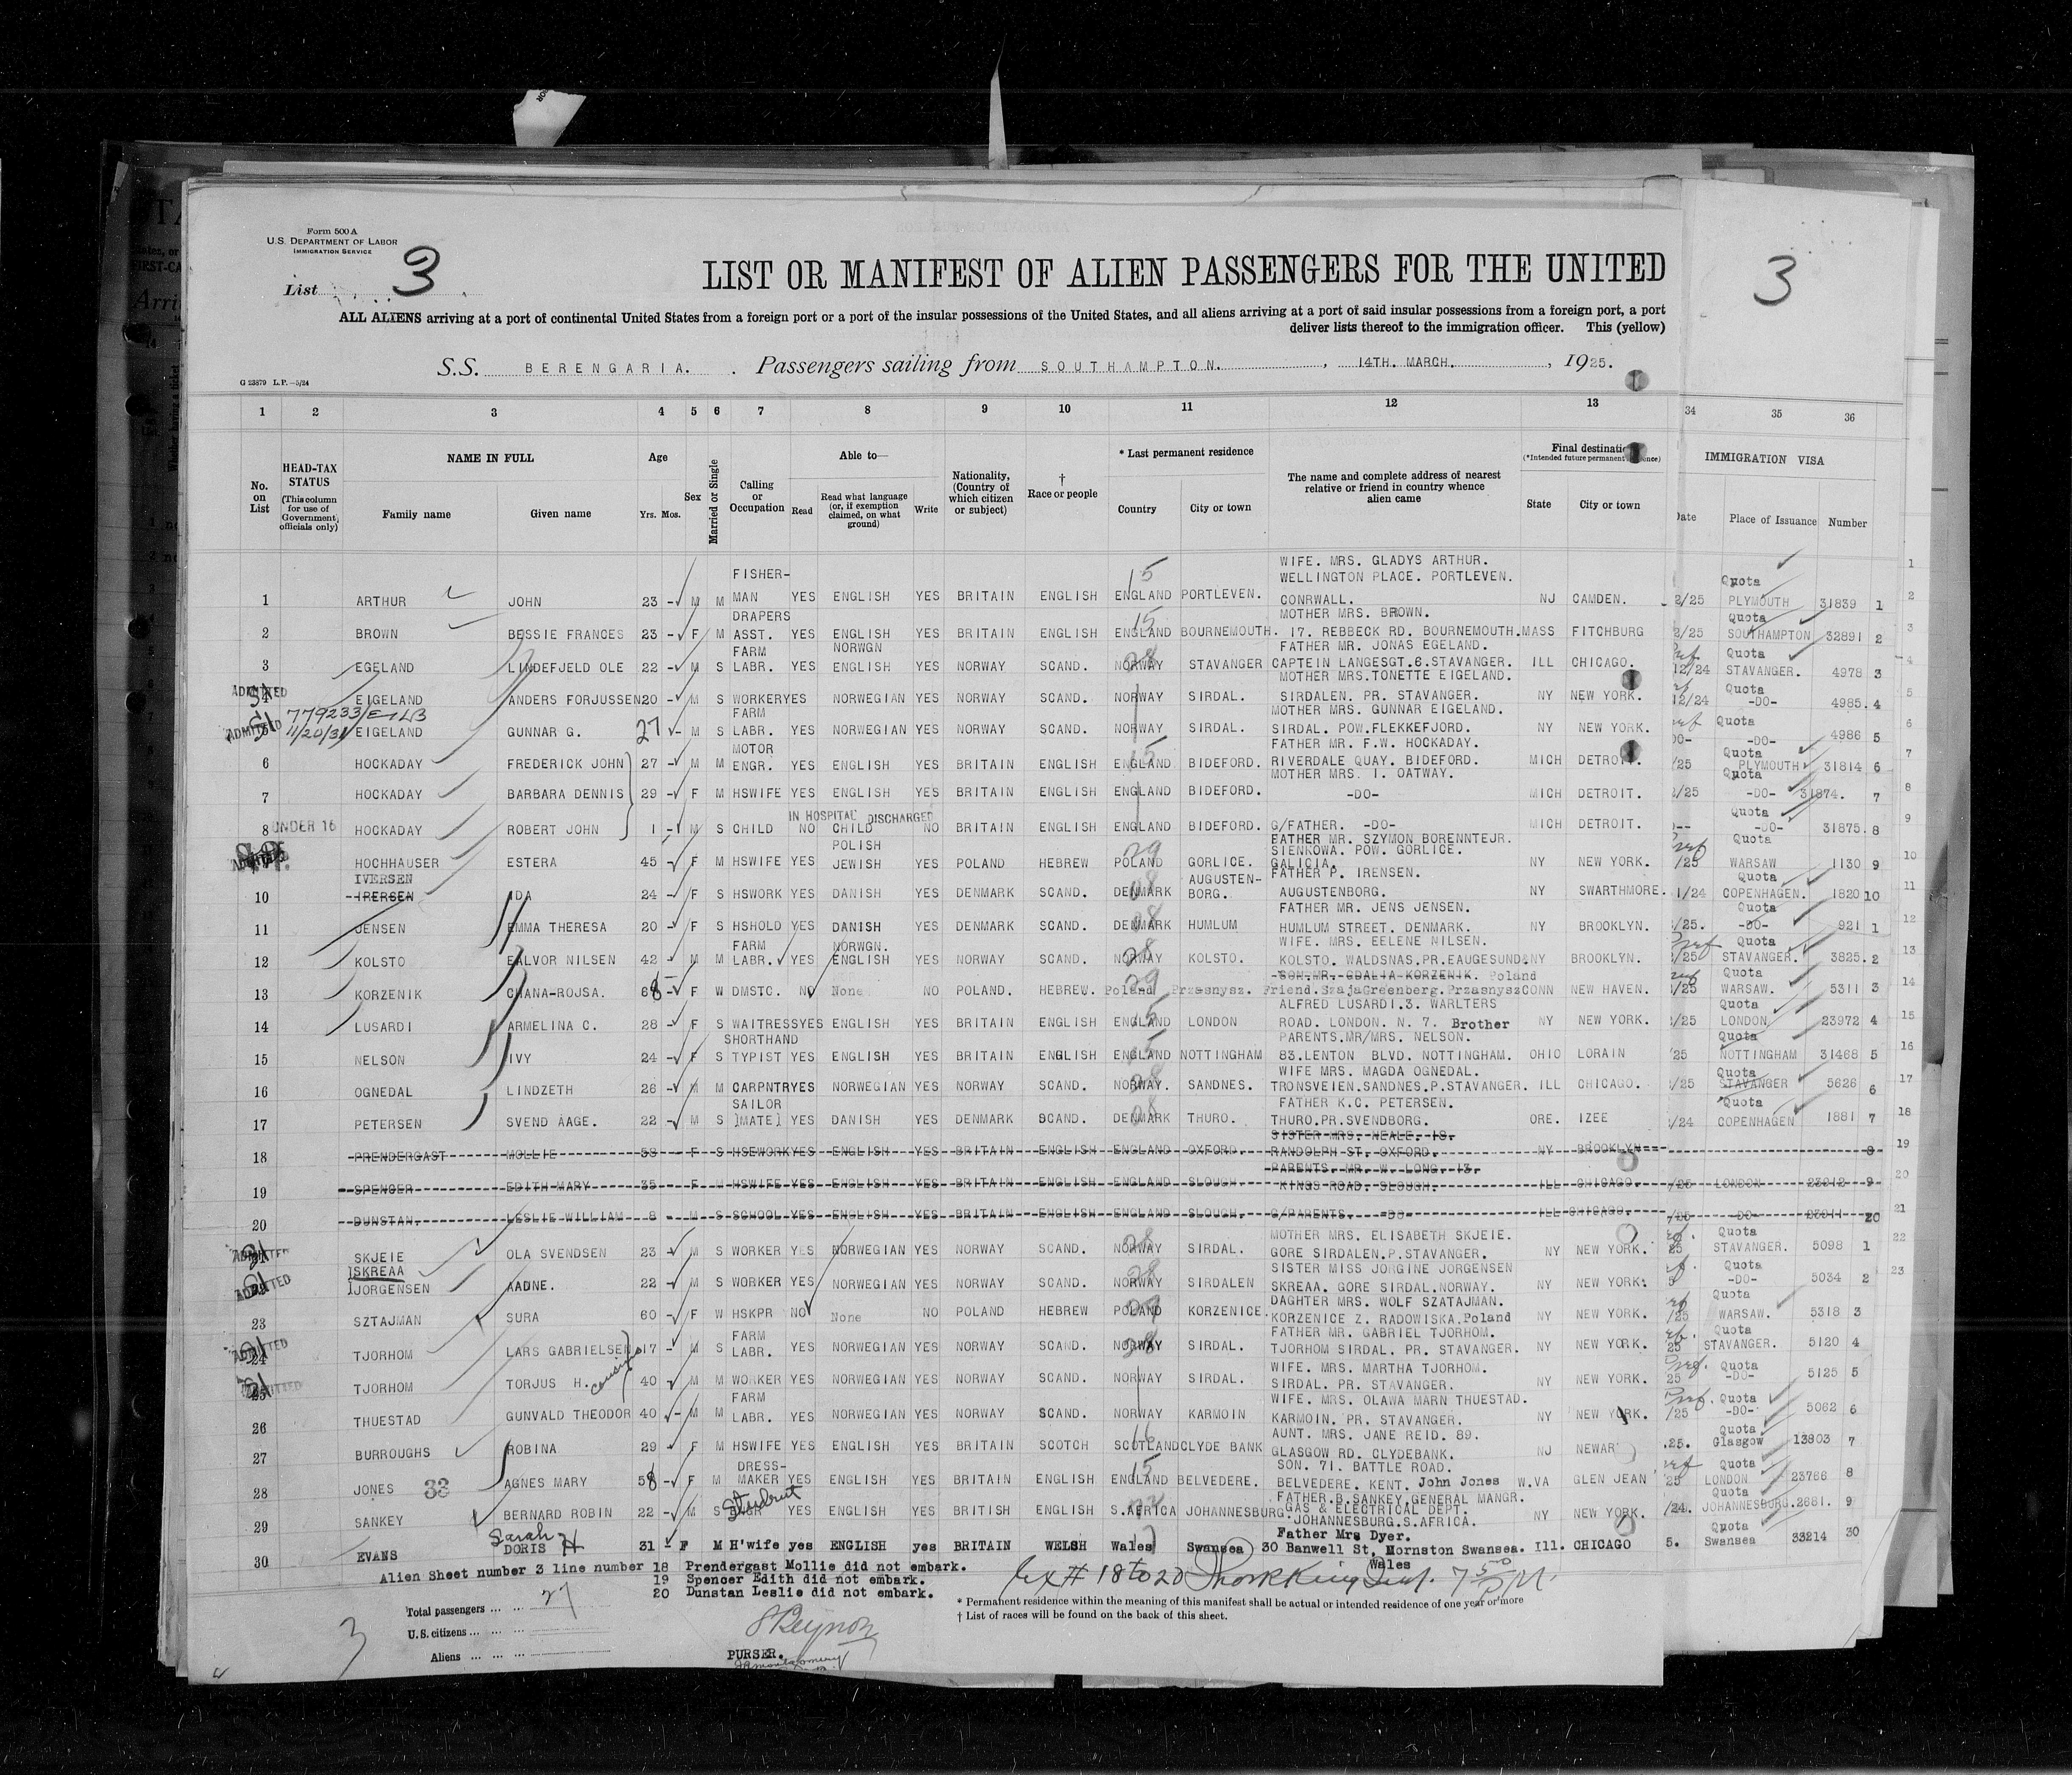 Form 500 A
U.S. DEPARTMENT OF LABOR
IMMIGRATION SERVICE
List 3
3
LIST OR MANIFEST OF ALIEN PASSENGERS FOR THE UNITED
ALL ALIENS arriving at a port of continental United States from a foreign port or a port of the insular possessions of the United States, and all aliens arriving at a port of said insular possessions from a foreign port, a port
deliver lists thereof to the immigration officer. This (yellow)
S.S. BERENGARIA. Passengers sailing from SOUTHAMPTON. , 14TH. MARCH. , 1925.
G 23879 L.P.—5/24
1 2 3 4 5 6 7 8 9 10 11 12 13 34 35 36
No. on List
HEAD-TAX STATUS
(This column for use of Government officials only)
NAME IN FULL
Family name Given name
Age
Yrs. Mos.
Sex
Married or Single
Calling or Occupation
Able to—
Read Read what language (or, if exemption claimed, on what ground) Write
Nationality, (Country of which citizen or subject)
† Race or people
* Last permanent residence
Country City or town
The name and complete address of nearest relative or friend in country whence alien came
Final destination
State City or town
IMMIGRATION VISA
Date Place of Issuance Number
1 ARTHUR JOHN 23 - M M FISHER-MAN YES ENGLISH YES BRITAIN ENGLISH 15 ENGLAND PORTLEVEN. WIFE. MRS. GLADYS ARTHUR. WELLINGTON PLACE. PORTLEVEN. CONRWALL. NJ CAMDEN. 2/25 Quota PLYMOUTH 31839 1
2 BROWN BESSIE FRANCES 23 - F M DRAPERS ASST. YES ENGLISH YES BRITAIN ENGLISH 15 ENGLAND BOURNEMOUTH. MOTHER MRS. BROWN. 17. REBBECK RD. BOURNEMOUTH. MASS FITCHBURG 2/25 Quota SOUTHAMPTON 32891 2
3 EGELAND LINDEFJELD OLE 22 - M S FARM LABR. YES NORWGN ENGLISH YES NORWAY SCAND. 28 NORWAY STAVANGER FATHER MR. JONAS EGELAND. CAPTEIN LANGESGT.6.STAVANGER. ILL CHICAGO. 12/24 Quota STAVANGER. 4978 3
ADMITTED EIGELAND ANDERS FORJUSSEN 20 - M S WORKER YES NORWEGIAN YES NORWAY SCAND. NORWAY SIRDAL. MOTHER MRS.TONETTE EIGELAND. SIRDALEN. PR. STAVANGER. NY NEW YORK. 12/24 Quota -DO- 4985. 4
ADMITTED 779233 11/20/31 EIGELAND GUNNAR G. 27 - M S FARM LABR. YES NORWEGIAN YES NORWAY SCAND. NORWAY SIRDAL. MOTHER MRS. GUNNAR EIGELAND. SIRDAL. POW.FLEKKEFJORD. NY NEW YORK. Quota -DO- 4986 5
6 HOCKADAY FREDERICK JOHN 27 - M M MOTOR ENGR. YES ENGLISH YES BRITAIN ENGLISH 15 ENGLAND BIDEFORD. FATHER MR. F.W. HOCKADAY. RIVERDALE QUAY. BIDEFORD. MICH DETROIT. /25 Quota PLYMOUTH 31814 6
7 HOCKADAY BARBARA DENNIS 29 - F M HSWIFE YES ENGLISH YES BRITAIN ENGLISH ENGLAND BIDEFORD. MOTHER MRS. I. OATWAY. -DO- MICH DETROIT. /25 Quota -DO- 31874. 7
8 UNDER 16 HOCKADAY ROBERT JOHN 1 -1 M S CHILD NO IN HOSPITAL DISCHARGED CHILD NO BRITAIN ENGLISH ENGLAND BIDEFORD. G/FATHER. -DO- MICH DETROIT. Quota -DO- 31875. 8
HOCHHAUSER ESTERA 45 - F M HSWIFE YES POLISH JEWISH YES POLAND HEBREW 29 POLAND GORLICE. FATHER MR. SZYMON BORENNTEJR. SIENKOWA. POW. GORLICE. GALICIA. NY NEW YORK. /25 Quota WARSAW 1130 9
10 IVERSEN IRERSEN IDA 24 - F S HSWORK YES DANISH YES DENMARK SCAND. 08 DENMARK AUGUSTEN-BORG. FATHER P. IRENSEN. AUGUSTENBORG. NY SWARTHMORE. 1/24 Quota COPENHAGEN. 1820 10
11 JENSEN EMMA THERESA 20 - F S HSHOLD YES DANISH YES DENMARK SCAND. 08 DENMARK HUMLUM FATHER MR. JENS JENSEN. HUMLUM STREET. DENMARK. NY BROOKLYN. /25. Quota -DO- 921 1
12 KOLSTO EALVOR NILSEN 42 - M M FARM LABR. YES NORWGN. ENGLISH YES NORWAY SCAND. 28 NORWAY KOLSTO. WIFE. MRS. EELENE NILSEN. KOLSTO. WALDSNAS.PR.EAUGESUND. NY BROOKLYN. /25 Quota STAVANGER. 3825. 2
13 KORZENIK CHANA-ROJSA. 68 - F W DMSTC. NO None NO POLAND. HEBREW. 29 Poland Przasnysz. SON.MR. GDALIA KORZENIK. Poland Friend.SzajaGreenberg.Przasnysz CONN NEW HAVEN. /25 Quota WARSAW. 5311 3
14 LUSARDI ARMELINA C. 28 - F S WAITRESS YES ENGLISH YES BRITAIN ENGLISH 15 ENGLAND LONDON ALFRED LUSARDI.3. WARLTERS ROAD. LONDON. N. 7. Brother NY NEW YORK. /25 Quota LONDON 23972 4
15 NELSON IVY 24 - F S SHORTHAND TYPIST YES ENGLISH YES BRITAIN ENGLISH ENGLAND NOTTINGHAM PARENTS.MR/MRS. NELSON. 83.LENTON BLVD. NOTTINGHAM. OHIO LORAIN /25 Quota NOTTINGHAM 31468 5
16 OGNEDAL LINDZETH 26 - M M CARPNTR YES NORWEGIAN YES NORWAY SCAND. 28 NORWAY. SANDNES. WIFE MRS. MAGDA OGNEDAL. TRONSVEIEN.SANDNES.P.STAVANGER. ILL CHICAGO. /25 Quota STAVANGER 5626 6
17 PETERSEN SVEND AAGE. 22 - M S SAILOR ]MATE] YES DANISH YES DENMARK SCAND. 08 DENMARK THURO. FATHER K.C. PETERSEN. THURO.PR.SVENDBORG. ORE. IZEE /24 Quota COPENHAGEN 1881 7
18 PRENDERGAST MOLLIE 58 - F S HSEWORK YES ENGLISH YES BRITAIN ENGLISH ENGLAND OXFORD. SISTER MRS. NEALE. 18. RANDOLPH ST. OXFORD. NY BROOKLYN 8
19 SPENCER EDITH MARY 35 - F M HSWIFE YES ENGLISH YES BRITAIN ENGLISH ENGLAND SLOUGH. PARENTS. MR. W. LONG. 13. KINGS ROAD. SLOUGH. ILL CHICAGO. /25 LONDON 23912 9
20 DUNSTAN. LESLIE WILLIAM 8 - M S SCHOOL YES ENGLISH YES BRITAIN ENGLISH ENGLAND SLOUGH. G/PARENTS. -DO- ILL CHICAGO. /25 -DO- 23911 20
ADMITTED SKJEIE OLA SVENDSEN 23 - M S WORKER YES NORWEGIAN YES NORWAY SCAND. 28 NORWAY SIRDAL. MOTHER MRS. ELISABETH SKJEIE. GORE SIRDALEN.P.STAVANGER. NY NEW YORK. 25 Quota STAVANGER. 5098 1
ADMITTED ]SKREAA ]JORGENSEN AADNE. 22 - M S WORKER YES NORWEGIAN YES NORWAY SCAND. 28 NORWAY SIRDALEN SISTER MISS JORGINE JORGENSEN SKREAA. GORE SIRDAL.NORWAY. NY NEW YORK. 5 Quota -DO- 5034 2
23 SZTAJMAN SURA 60 - F W HSKPR NO None NO POLAND HEBREW 29 POLAND KORZENICE. DAGHTER MRS. WOLF SZATAJMAN. KORZENICE Z. RADOWISKA.Poland NY NEW YORK. /25 Quota WARSAW. 5318 3
ADMITTED 24 TJORHOM LARS GABRIELSEN 17 - M S FARM LABR. YES NORWEGIAN YES NORWAY SCAND. 28 NORWAY SIRDAL. FATHER MR. GABRIEL TJORHOM. TJORHOM SIRDAL. PR. STAVANGER. NY NEW YORK. 25 Quota STAVANGER. 5120 4
ADMITTED 25 TJORHOM TORJUS H. cousins 40 M M WORKER YES NORWEGIAN YES NORWAY SCAND. NORWAY SIRDAL. WIFE. MRS. MARTHA TJORHOM. SIRDAL. PR. STAVANGER. NY NEW YORK. 25 Quota -DO- 5125 5
26 THUESTAD GUNVALD THEODOR 40 - M M FARM LABR. YES NORWEGIAN YES NORWAY SCAND. NORWAY KARMOIN WIFE. MRS. OLAWA MARN THUESTAD. KARMOIN. PR. STAVANGER. NY NEW YORK. /25 Quota -DO- 5062 6
27 BURROUGHS ROBINA 29 F M HSWIFE YES ENGLISH YES BRITAIN SCOTCH 16 SCOTLAND CLYDE BANK AUNT. MRS. JANE REID. 89. GLASGOW RD. CLYDEBANK. NJ NEWAR .25. Quota Glasgow 13803 7
28 JONES 33 AGNES MARY 58 - F M DRESS-MAKER YES ENGLISH YES BRITAIN ENGLISH 15 ENGLAND BELVEDERE. SON. 71. BATTLE ROAD. BELVEDERE. KENT. John Jones W.VA GLEN JEAN 25 Quota LONDON 23766 8
29 SANKEY BERNARD ROBIN 22 - M S Student ENGR YES ENGLISH YES BRITISH ENGLISH S.AFRICA JOHANNESBURG. FATHER.B.SANKEY.GENERAL MANGR. GAS & ELECTRICAL DEPT. JOHANNESBURG.S.AFRICA. NY NEW YORK. /24. Quota JOHANNESBURG. 2681. 9
30 EVANS Sarah DORIS H 31 F M H'wife yes ENGLISH yes BRITAIN WELSH 17 Wales Swansea Father Mrs Dyer. 30 Banwell St, Mornston Swansea. Wales Ill. CHICAGO 5. Quota Swansea 33214 30
Alien Sheet number 3 line number 18 Prendergast Mollie did not embark.
19 Spencer Edith did not embark.
20 Dunstan Leslie did not embark.
18 to 20
Total passengers 27
U.S. citizens
Aliens
3
PURSER.
* Permanent residence within the meaning of this manifest shall be actual or intended residence of one year or more
† List of races will be found on the back of this sheet.